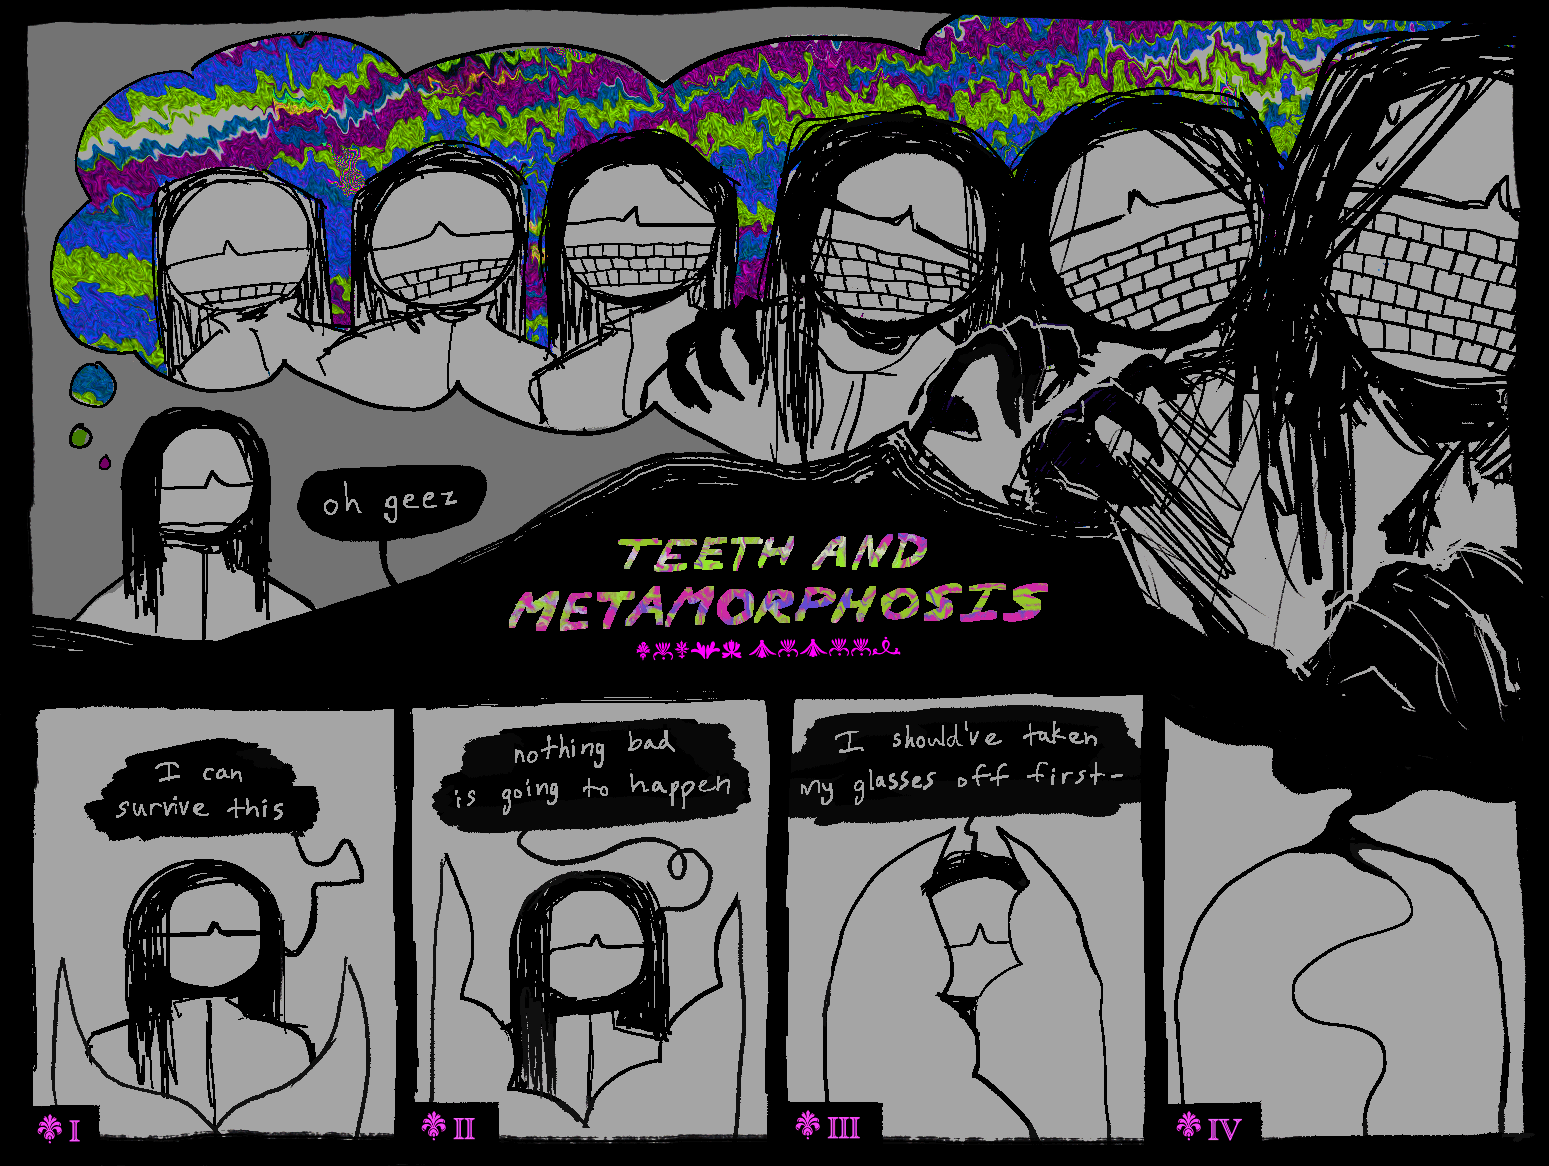 oh geez
TEETH AND
METAMORPHOSIS
I can
survive this
nothing bad
is going to happen
I should've taken
my glasses off first-
I
II
III
IV